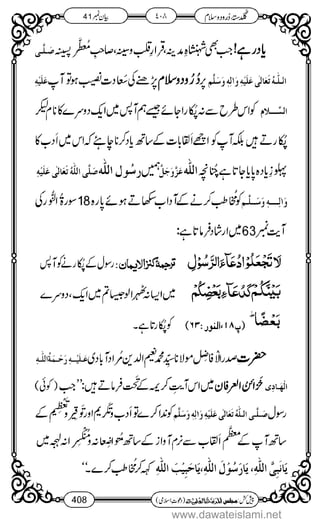 گلدستۂ دُرود و سلام ٤٠٨ بیان نمبر 41
یاد رہے! جب بھی شہنشاہِ مدینہ، قرارِ قلب وسینہ، صاحبِ مُعَطَّر پسینہ صَلَّی
اللہُ تَعَالٰی عَلَیْہِ وَاٰلِہٖ وَسَلَّم پر دُرُود و سلام پڑھنے کی سعادت نصیب ہو تو آپ عَلَیْہِ
السَّلَام کو اس طرح سے نہ پکارا جائے جیسے ہم آپس میں ایک دوسرے کا نام لیکر
پکارتے ہیں بلکہ آپ کو اچھے القابات کے ساتھ یاد کرنا چاہئے کہ اس میں ادب کا
پہلو زیادہ پایا جاتا ہے چُنانچہ اللہ عَزَّوَجَلَّ ہمیں رسول اللہ صَلَّی اللہُ تَعَالٰی عَلَیْہِ
وَاٰلِہٖ وَسَلَّم کو مُخاطب کرنے کے آداب سکھاتے ہوئے پارہ 18 سورۃُ النُّور کی
آیت نمبر 63 میں ارشاد فرماتا ہے:
لَا تَجْعَلُوْا دُعَآءَ الرَّسُوْلِ ترجمۂ کنز الایمان: رسول کے پکارنے کو آپس
بَیْنَكُمْ كَدُعَآءِ بَعْضِكُمْ میں ایسا نہ ٹھہرالو جیسا تم میں ایک، دوسرے
بَعْضًا (پ۱۸، النور: ۶۳) کو پکارتا ہے۔
حضرت صدرُ الافاضل مولانا سیِّد محمد نعیم الدین مُراد آبادی عَلَیْہِ رَحْمَۃُ اللہِ
الْہَادِی خَزَائنُ العرفان میں اس آیت کے تحت فرماتے ہیں: ’’جب (کوئی)
رسول صَلَّی اللہُ تَعَالٰی عَلَیْہِ وَاٰلِہٖ وَسَلَّم کو ندا کرے تو ادب و تکریم اور توقیر و تعظیم کے
ساتھ آپ کے مُعظَّم اَلقاب سے نرم آواز کے ساتھ مُتواضعانہ و مُنکسرانہ لہجہ میں
یَانَبِیَّ اللہِ، یَارَسُوْلَ اللہِ، یَاحَبِیْبَ اللہِ کہہ کر مُخاطب کرے۔‘‘
408
www.dawateislami.net